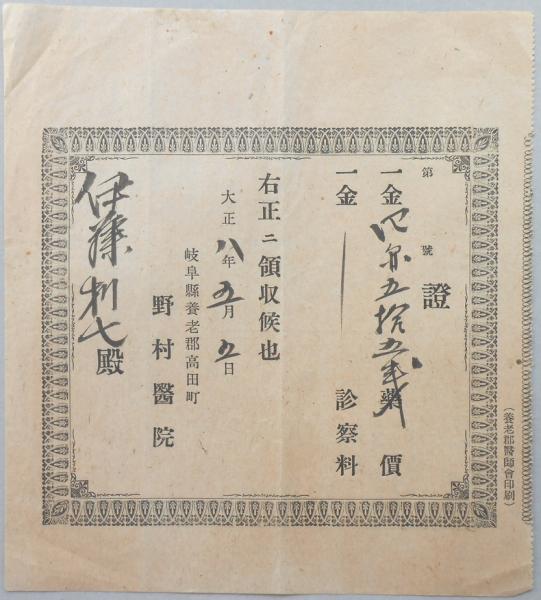 第 號 證
一金 四円五拾五銭 藥價
一金 診察料
右正ニ領収候也
大正八年五月五日
岐阜縣養老郡高田町
野村醫院
伊藤利七殿
(養老郡醫師會印刷)